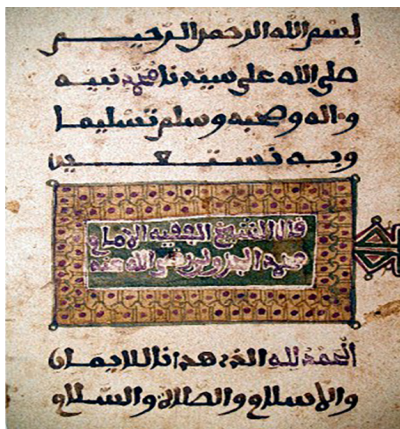 بسم الله الرحمن الرحيم
صلى الله على سيدنا محمد نبيه
وءاله وصحبه وسلم تسليما
وبه نستعين
قال الشيخ الفقيه الإمام
محمد الجزولي رضي الله عنه
الحمد لله الذي هدانا للإيمان
والإسلام والصلاة والسلام